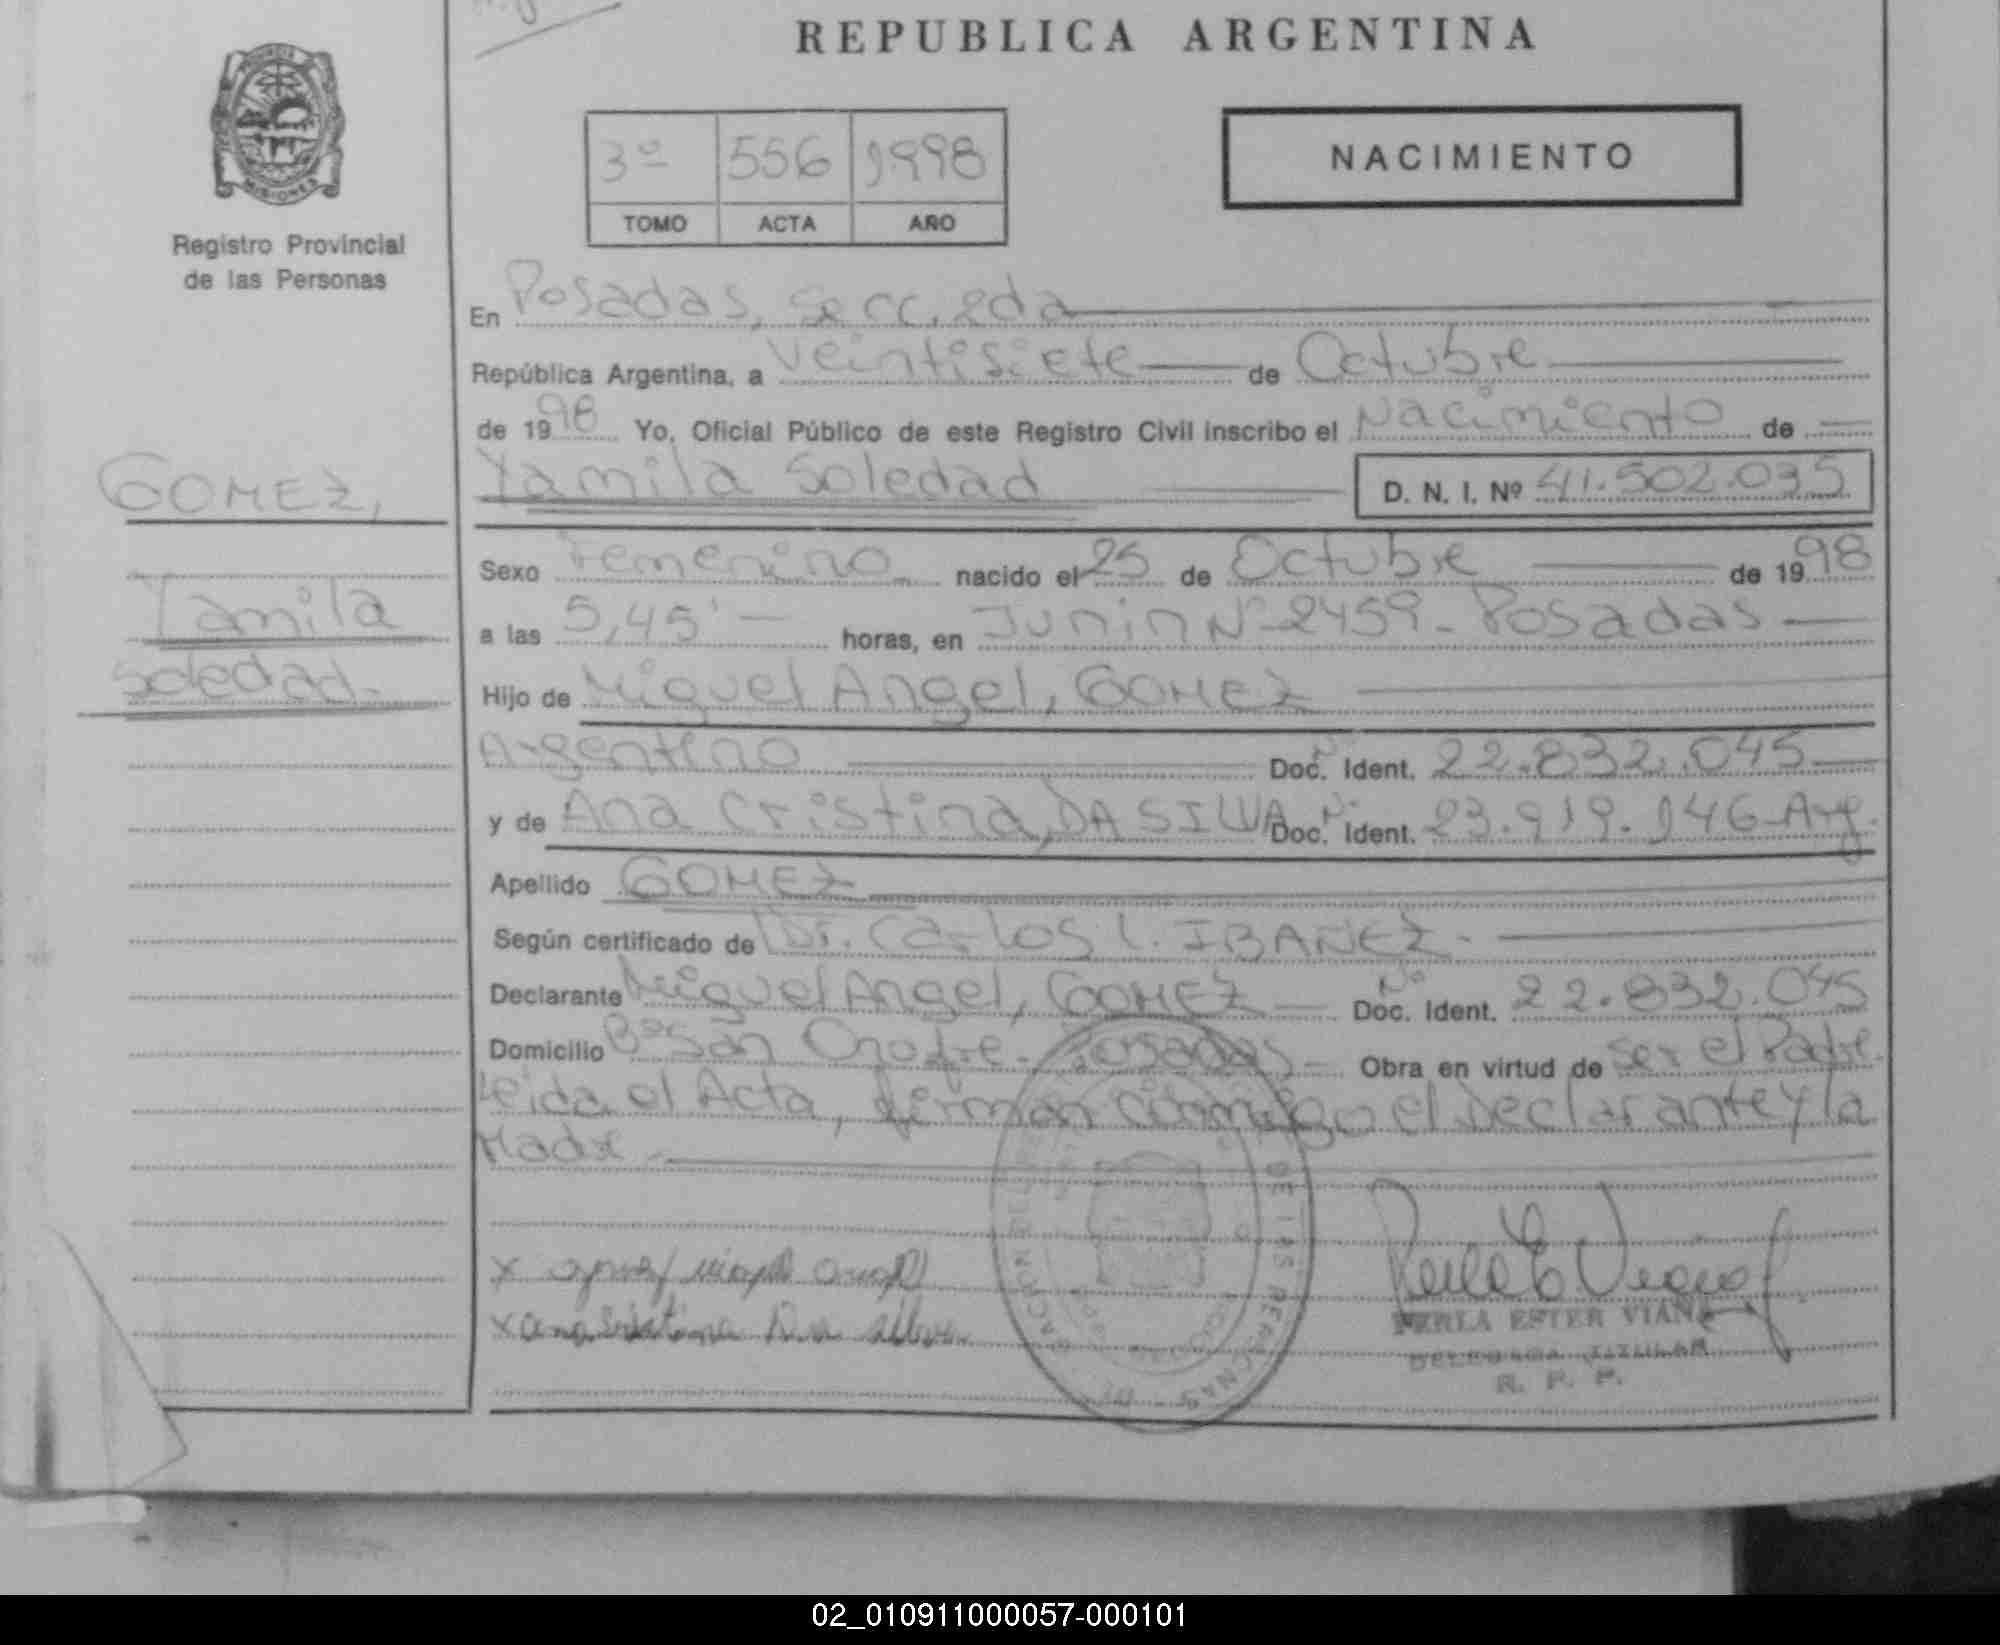 REPUBLICA ARGENTINA
PROVINCIA DE
MISIONES
Registro Provincial
de las Personas
3º 556 1998
TOMO ACTA AÑO
NACIMIENTO
En Posadas, Secc. 2da
República Argentina, a veintisiete de Octubre
de 1998 Yo, Oficial Público de este Registro Civil inscribo el Nacimiento de
Yamila Soledad D. N. I. Nº 41.502.035
GOMEZ,
Yamila
Soledad.
Sexo Femenino nacido el 25 de Octubre de 1998
a las 5,45' horas, en Junin Nº 2459 - Posadas
Hijo de Miguel Angel, GOMEZ
Argentino Doc. Nº Ident. 22.832.045
y de Ana Cristina, DA SILVA Doc. Nº Ident. 23.919.146 Arg.
Apellido GOMEZ
Según certificado de Dr. Carlos L. IBAÑEZ.
Declarante Miguel Angel, GOMEZ Doc. Nº Ident. 22.832.045
Domicilio Bº San Onofre. Posadas Obra en virtud de ser el Padre.
Leida el Acta, firman conmigo el Declarante y la
Madre
x
x ana Cristina Da silva
DE LAS PERSONAS
PERLA ESTER VIANA
DELEGADA TITULAR
R. P. P.
02_010911000057-000101